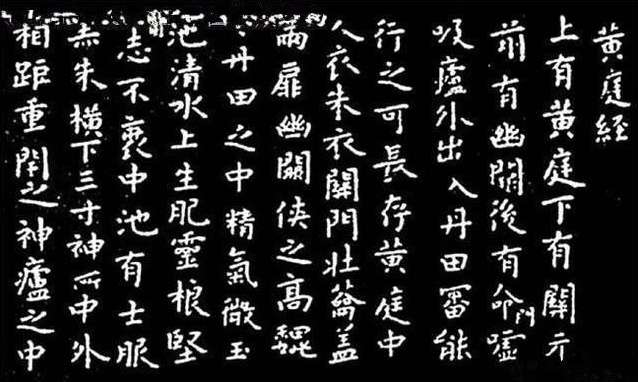 黄庭經
上有黄庭下有關元
前有幽闕後有命門噓
吸廬外出入丹田審能
行之可長存黄庭中
人衣朱衣關門壯籥蓋
兩扉幽闕俠之高巍
〻丹田之中精氣微玉
池清水上生肥靈根堅
志不衰中池有士服
赤朱橫下三寸神所中外
相距重閇之神廬之中